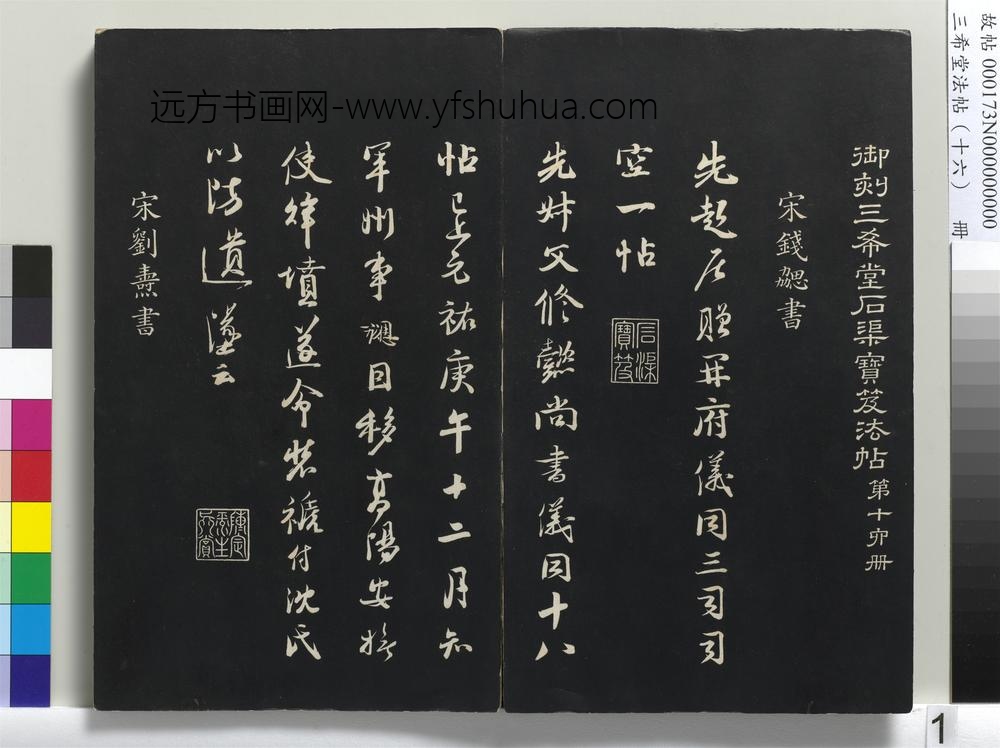 御刻三希堂石渠寶笈法帖 第十六冊
宋錢勰書
先起居贈開府儀同三司司
空一帖
石渠寶笈
先叔父修懿尚書儀同十八
帖已上元祐庚午十二月知
軍州事勰自移高陽安撫
使拜墳遂令裝褫付沈氏
以防遺墜云
宋劉燾書
远方书画网-www.yfshuhua.com
故帖 000173N000000000
三希堂法帖（十六） 冊
1